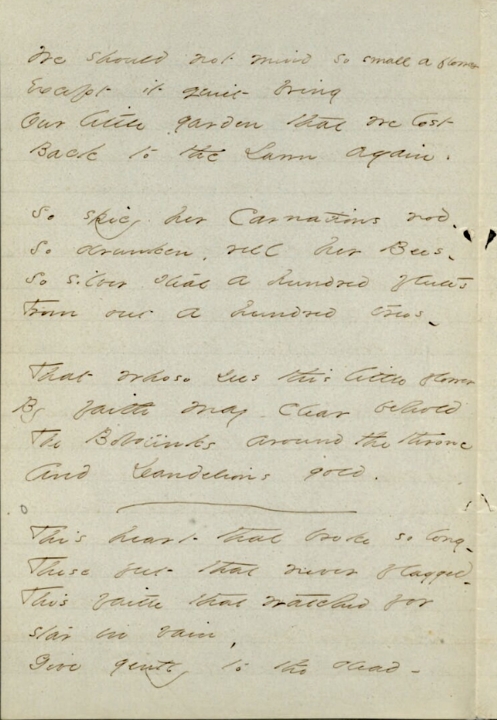 We should not mind so small a flower
Except it quiet bring
Our little garden that we lost
Back to the Lawn again.
So spicy her Carnations nod –
So drunken, reel her Bees –
So silver steal a hundred flutes
From out a hundred trees –
That whoso sees this little flower
By faith may clear behold
The Bobolinks around the throne
And Dandelions gold.
This heart that broke so long –
These feet that never flagged –
This faith that watched for
star in vain,
Give gently to the dead –